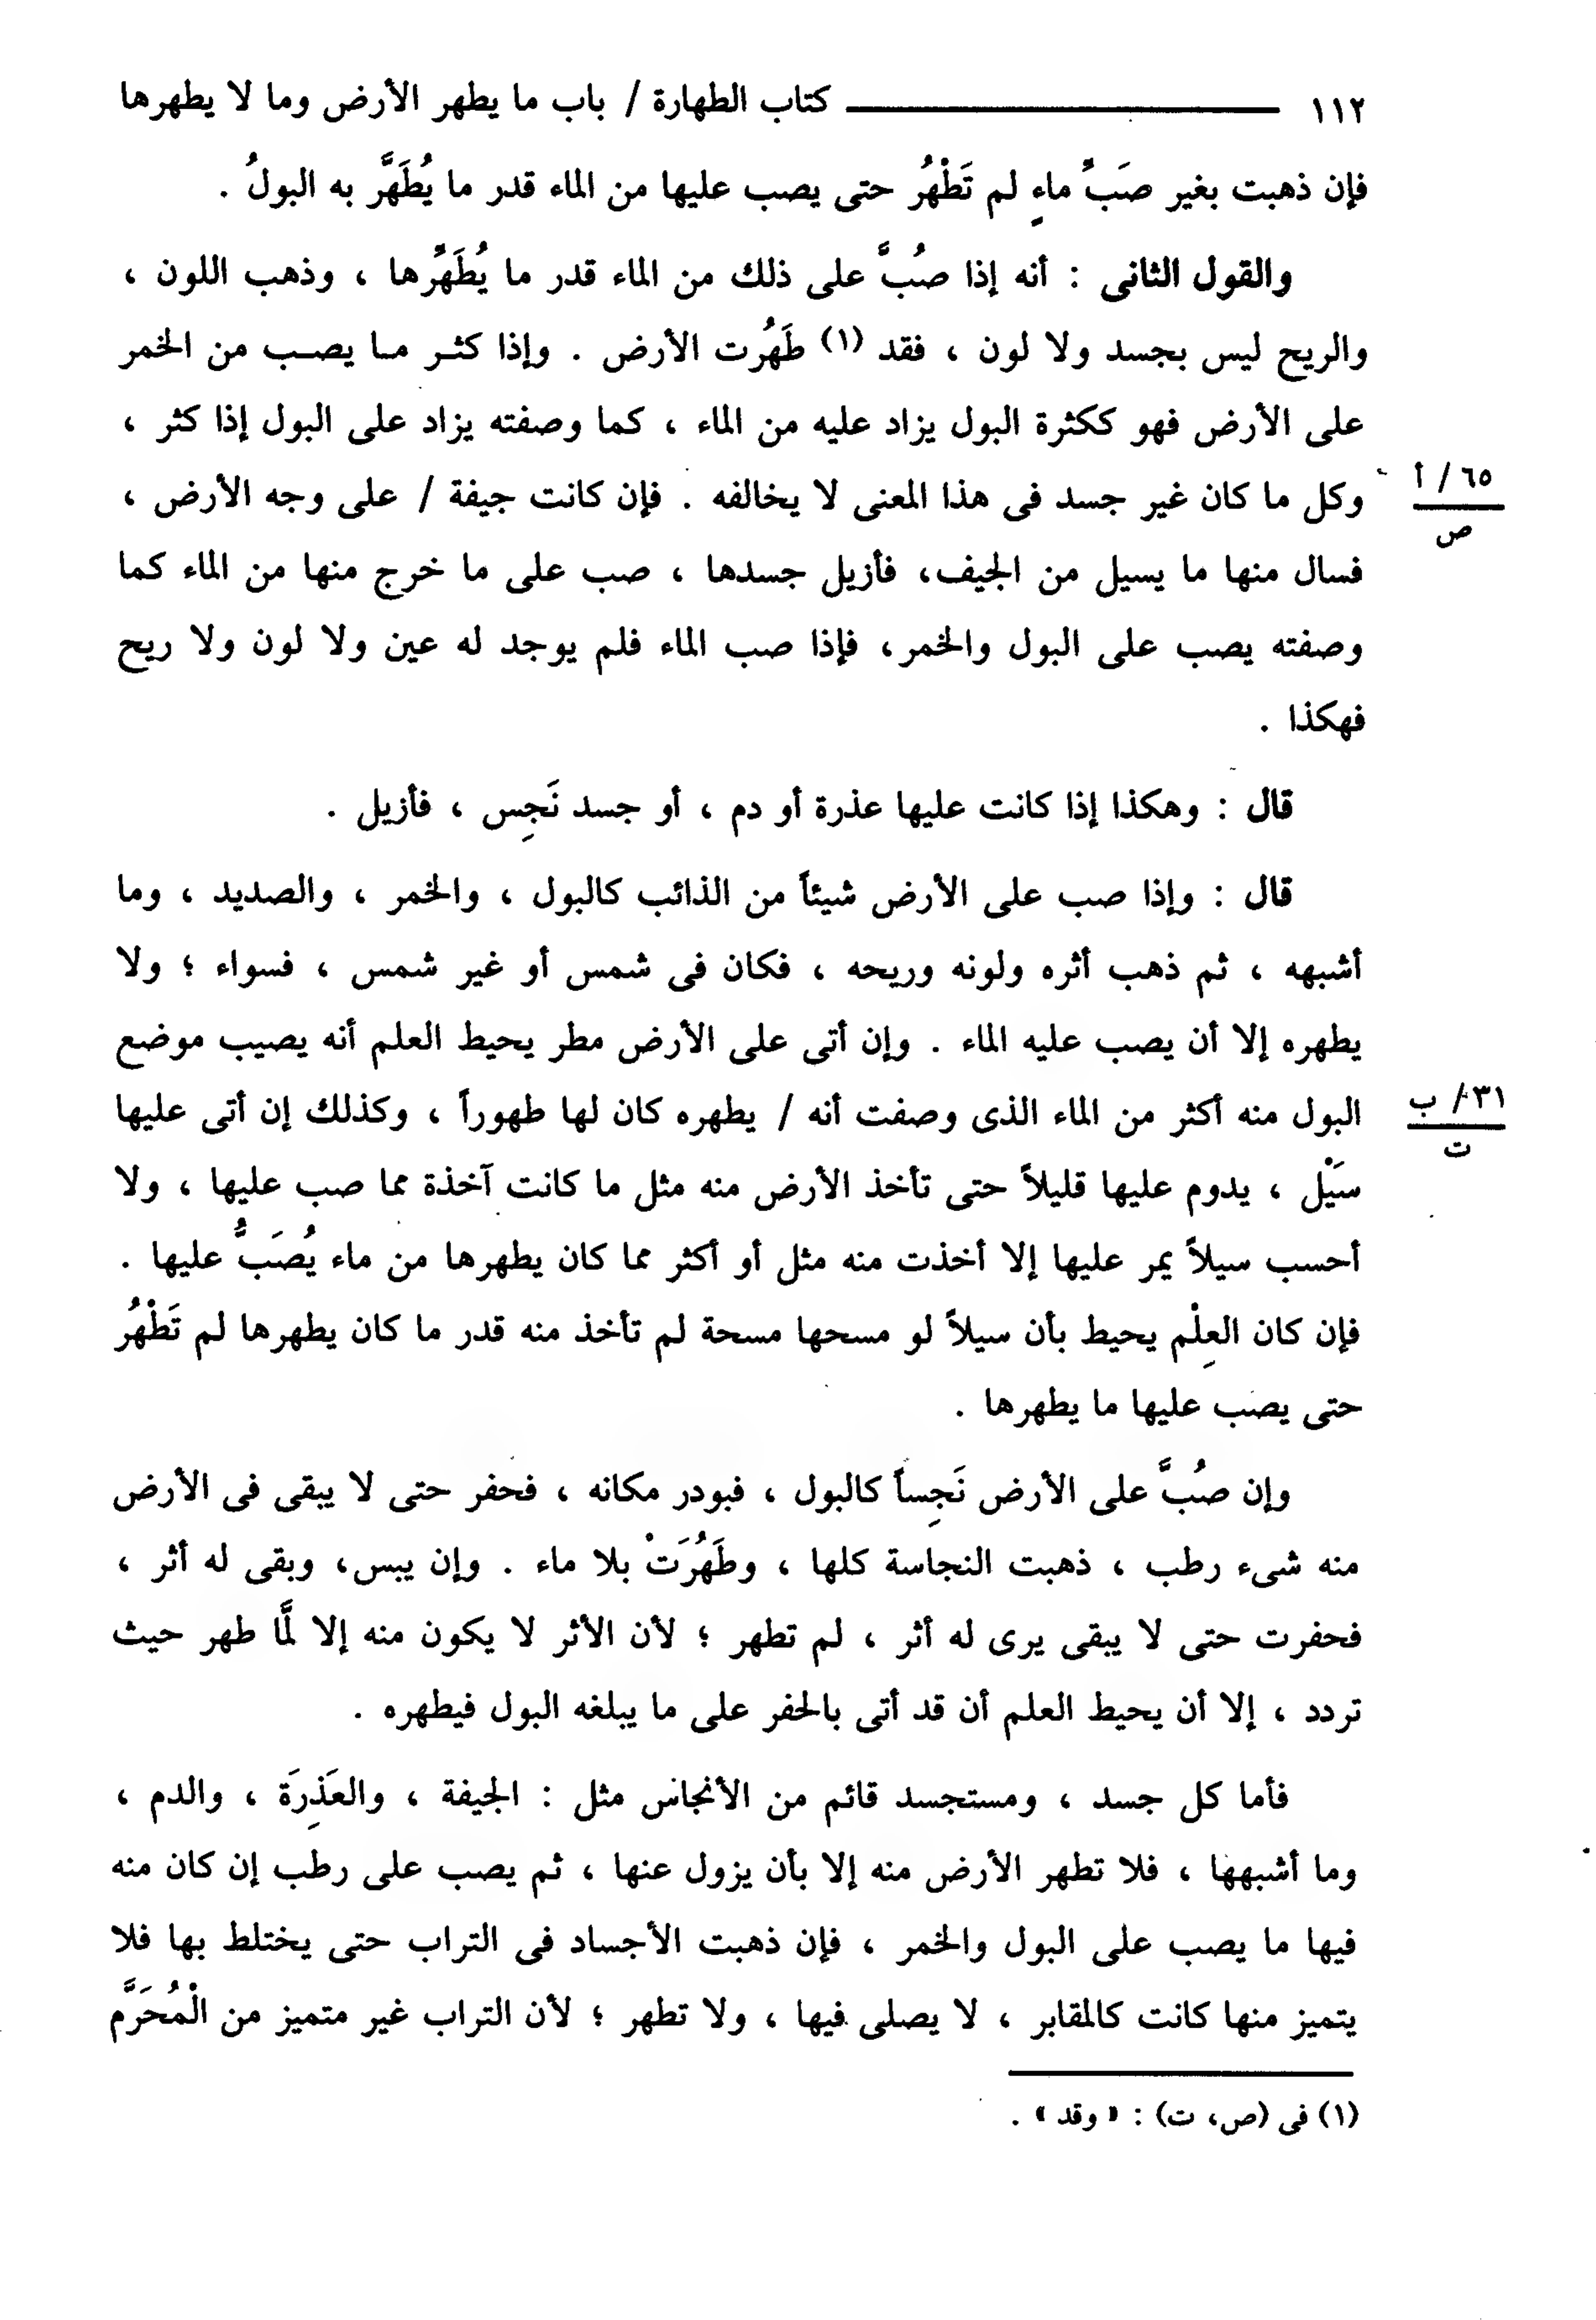 ١١٢ ــــــــــــــــ كتاب الطهارة / باب ما يطهر الأرض وما لا يطهرها
فإن ذهبت بغير صَبِّ ماءٍ لم تَطْهُر حتى يصب عليها من الماء قدر ما يُطَهَّر به البولُ .
والقول الثانى : أنه إذا صُبَّ على ذلك من الماء قدر ما يُطَهِّرها ، وذهب اللون ،
والريح ليس بجسد ولا لون ، فقد (١) طَهُرت الأرض . وإذا كثر ما يصب من الخمر
على الأرض فهو ككثرة البول يزاد عليه من الماء ، كما وصفته يزاد على البول إذا كثر ،
وكل ما كان غير جسد فى هذا المعنى لا يخالفه . فإن كانت جيفة / على وجه الأرض ،
٦٥/ أ
ص
فسال منها ما يسيل من الجيف، فأزيل جسدها ، صب على ما خرج منها من الماء كما
وصفته يصب على البول والخمر، فإذا صب الماء فلم يوجد له عين ولا لون ولا ريح
فهكذا .
قال : وهكذا إذا كانت عليها عذرة أو دم ، أو جسد نَجِس ، فأزيل .
قال : وإذا صب على الأرض شيئاً من الذائب كالبول ، والخمر ، والصديد ، وما
أشبهه ، ثم ذهب أثره ولونه وريحه ، فكان فى شمس أو غير شمس ، فسواء ؛ ولا
يطهره إلا أن يصب عليه الماء . وإن أتى على الأرض مطر يحيط العلم أنه يصيب موضع
البول منه أكثر من الماء الذى وصفت أنه / يطهره كان لها طهوراً ، وكذلك إن أتى عليها
٣١/ ب
ت
سَيْل ، يدوم عليها قليلاً حتى تأخذ الأرض منه مثل ما كانت آخذة مما صب عليها ، ولا
أحسب سيلاً يمر عليها إلا أخذت منه مثل أو أكثر مما كان يطهرها من ماء يُصَبُّ عليها .
فإن كان العِلْم يحيط بأن سيلاً لو مسحها مسحة لم تأخذ منه قدر ما كان يطهرها لم تَطْهُر
حتى يصب عليها ما يطهرها .
وإن صُبَّ على الأرض نَجِساً كالبول ، فبودر مكانه ، فحفر حتى لا يبقى فى الأرض
منه شىء رطب ، ذهبت النجاسة كلها ، وطَهُرَتْ بلا ماء . وإن يبس، وبقى له أثر ،
فحفرت حتى لا يبقى يرى له أثر ، لم تطهر ؛ لأن الأثر لا يكون منه إلا لَّما طهر حيث
تردد ، إلا أن يحيط العلم أن قد أتى بالحفر على ما يبلغه البول فيطهره .
فأما كل جسد ، ومستجسد قائم من الأنجاس مثل : الجيفة ، والعَذِرَة ، والدم ،
وما أشبهها ، فلا تطهر الأرض منه إلا بأن يزول عنها ، ثم يصب على رطب إن كان منه
فيها ما يصب على البول والخمر ، فإن ذهبت الأجساد فى التراب حتى يختلط بها فلا
يتميز منها كانت كالمقابر ، لا يصلى فيها ، ولا تطهر ؛ لأن التراب غير متميز من الْمُحَرَّم
(١) فى (ص، ت) : « وقد » .